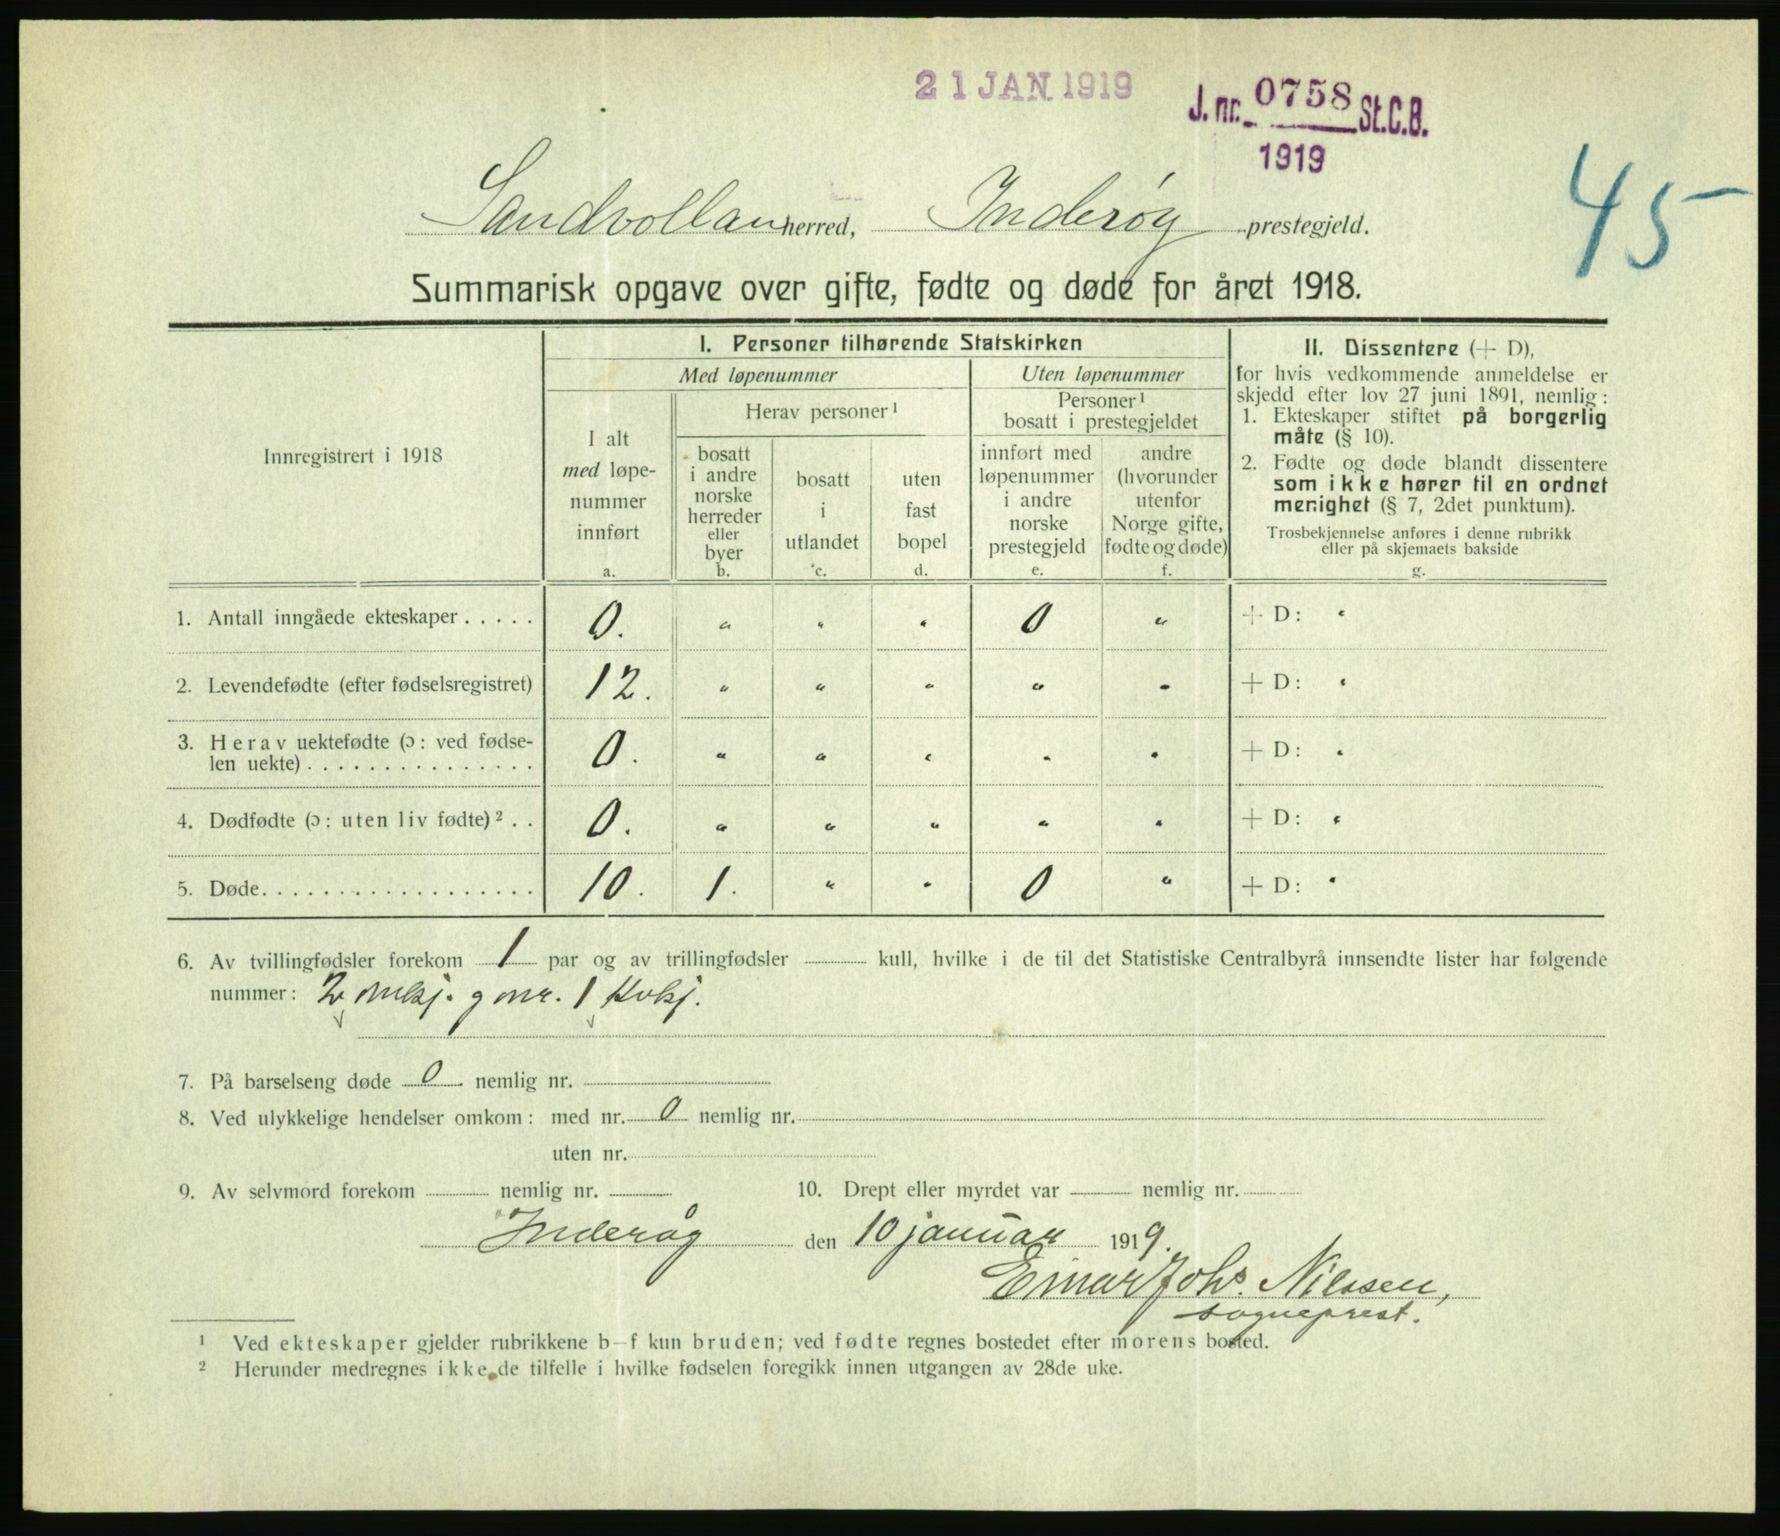 21 JAN 1919
J. nr. 0758 St.C.B.
1919
45
Sandvollan herred, Inderøy prestegjeld.
Summarisk opgave over gifte, fødte og døde for året 1918.
Innregistrert i 1918
I. Personer tilhørende Statskirken
Med løpenummer
Uten løpenummer
I alt
med løpe-
nummer
innført
a.
Herav personer ¹
bosatt
i andre
norske
herreder
eller
byer
b.
bosatt
i
utlandet
c.
uten
fast
bopel
d.
Personer ¹
bosatt i prestegjeldet
innført med
løpenummer
i andre
norske
prestegjeld
e.
andre
(hvorunder
utenfor
Norge gifte,
fødte og døde)
f.
II. Dissentere (+ D),
for hvis vedkommende anmeldelse er
skjedd efter lov 27 juni 1891, nemlig:
1. Ekteskaper stiftet på borgerlig
måte (§ 10).
2. Fødte og døde blandt dissentere
som ikke hører til en ordnet
menighet (§ 7, 2det punktum).
Trosbekjennelse anføres i denne rubrikk
eller på skjemaets bakside
g.
1. Antall inngåede ekteskaper . . . . . 0. " " " 0 " + D: "
2. Levendefødte (efter fødselsregistret) 12. " " " " " + D: "
3. Herav uektefødte (ɔ: ved fødse-
len uekte) . . . . . . . . . . . . . . . 0. " " " " " + D: "
4. Dødfødte (ɔ: uten liv fødte) ² . . 0. " " " " " + D: "
5. Døde. . . . . . . . . . . . . . . . . . 10. 1. " " 0 " + D: "
6. Av tvillingfødsler forekom 1 par og av trillingfødsler kull, hvilke i de til det Statistiske Centralbyrå innsendte lister har følgende
nummer: 2 mkj. g nr. 1 Kvkj.
7. På barselseng døde 0 nemlig nr.
8. Ved ulykkelige hendelser omkom: med nr. 0 nemlig nr.
uten nr.
9. Av selvmord forekom nemlig nr. 10. Drept eller myrdet var nemlig nr.
Inderøy den 10 januar 1919.
Einar Johs. Nilssen,
sogneprest.
¹ Ved ekteskaper gjelder rubrikkene b–f kun bruden; ved fødte regnes bostedet efter morens bosted.
² Herunder medregnes ikke de tilfelle i hvilke fødselen foregikk innen utgangen av 28de uke.